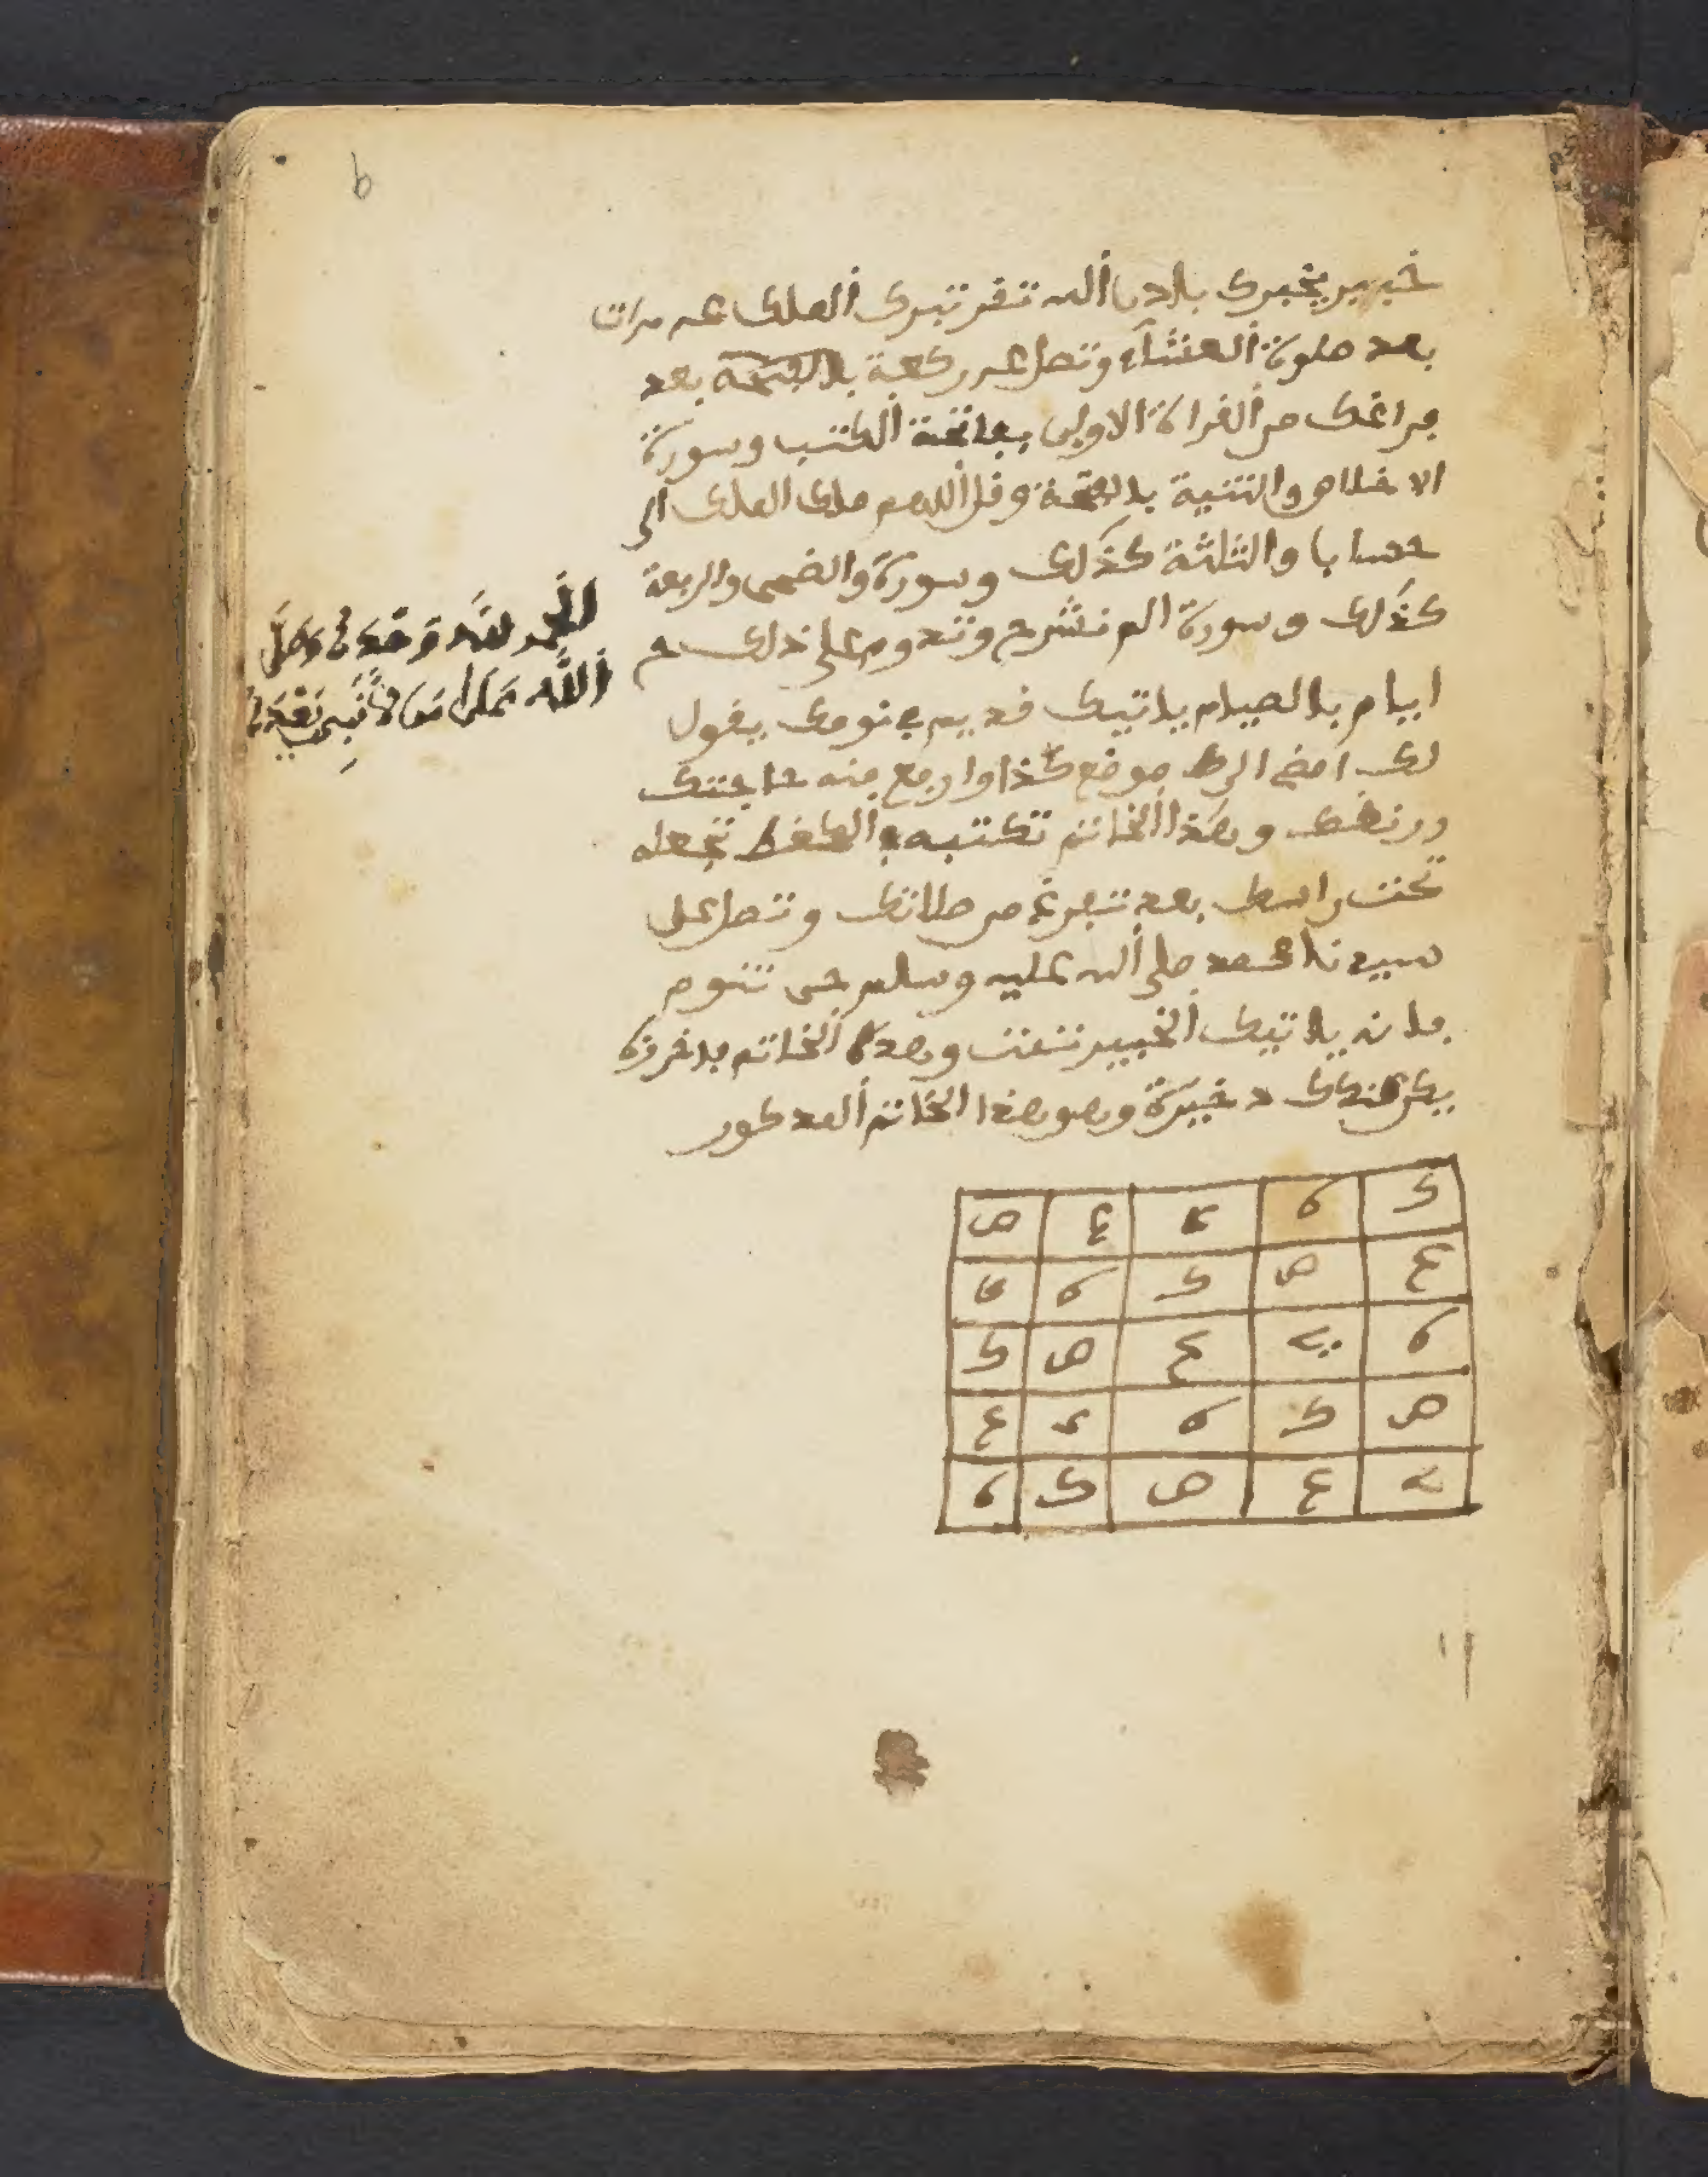 خبير يخبرك باذن الله تقر تبرك الملك عـ مرات
بعد صلوة العشاء وتصل ركعة بالفتحة بعد
فراغك من القراة الاولى بفاتحة الكتب وسورة
الاخلاص والثنية بالفتحة وقل اللهم ملك الملك الى
حساب والثلثة كذلك وسورة والضحى والربعة
كذلك وسورة الم نشرح وتدوم على ذلك
ايام بالصيام ياتيك خديم في نومك يقول
لك امض الى موضع كذا وارجع منه حاجتك
وهذا الخاتم تكتبه في الكغط تجعله
تحت راسك بعد تفرغ من صلاتك وتصل على
سيدنا محمد صلى الله عليه وسلم حتى تنوم
فانه ياتيك الخبير وهذا الخاتم
يكن عندك دخيرة وهو هذا الخاتم المدكور
الحمد لله وحده وصلى
الله على من لا نبي بعده
ك ه ي ع ص
ع ص ك ه ي
ه ي ع ص ك
ص ك ه ي ع
ي ع ص ك ه